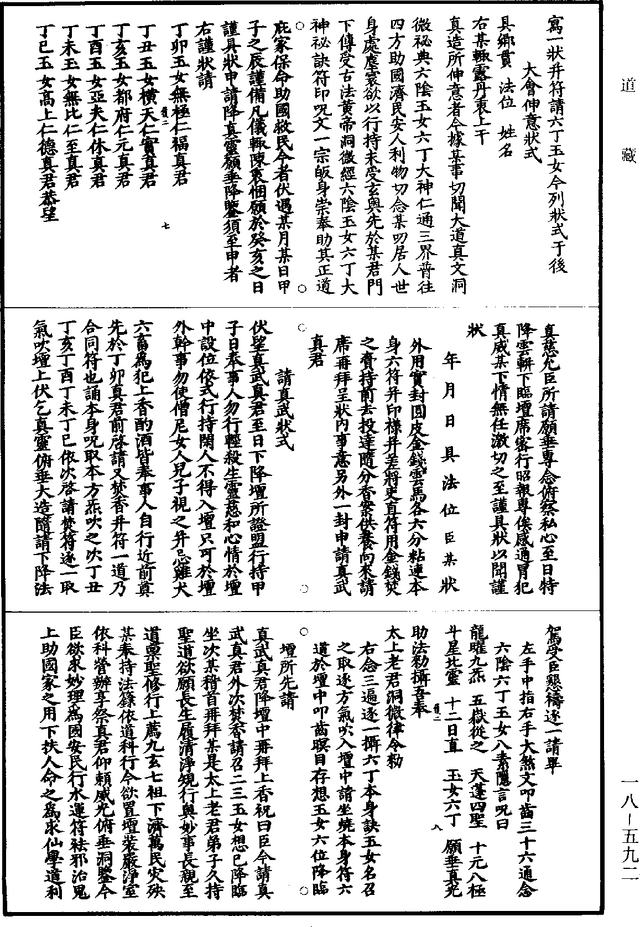 道藏
寫一狀并符請六丁玉女今列狀式于後
大會伸意狀式
具鄉貫 法位 姓名
右某輒露丹衷上干
真造所伸意者今據某事切聞大道真文洞
微祕典六陰玉女六丁大神仁通三界普往
四方助國濟民安人利物切念某叨居人世
身處塵寰欲以行持未受玄與先於某君門
下傳受古法黃帝洞微經六陰玉女六丁大
神祕訣符印呪文一宗皈身崇奉助其正道
庇家保命助國救民今者伏遇某月某日甲
子之辰謹備凡儀輒陳衷悃願於癸亥之日
謹具狀申請降真靈願垂降鑒須至申者
右謹狀請
丁卯玉女無極仁福真君
丁丑玉女橫天仁貴真君
丁亥玉女都府仁元真君
丁酉玉女亞夫仁休真君
丁未玉女無比仁至真君
丁巳玉女高上仁德真君恭望
七
真慈允臣所請願垂專念俯察私心至日特
降雲軿下臨壇席密行昭報專俟感通冒犯
真威某下情無任激切之至謹具狀以聞謹
狀
年 月 日 具法位臣某狀
外用實封圓皮金錢雲馬各六分粘連本
身六符并印樣并差將吏直符用金錢焚
之賫持前去投達隨分香菓供養向來請
席再拜呈狀內事意另外一封申請真武
真君
請真武狀式
伏望真武真君至日下降壇所證盟行持甲
子日奉事人勿行輕殺生靈慈和心情於壇
中設位依式行持闲人不得入壇只可於壇
外幹事勿使僧尼女人見子視之并忌雞犬
六畜為犯上香酌酒皆奉事人自行近前奠
先於丁卯真君前啓請又焚香并符一道乃
合同符也誦本身呪取本方炁吹之次丁丑
丁亥丁酉丁未丁巳依次啓請焚符逐一取
氣吹壇上伏乞真靈俯垂大造隨請下降法
駕受臣懇禱逐一請畢
左手中指右手大煞文叩齒三十六通念
六陰六丁玉女八素隱言呪曰
龍曜九炁 五嶽從之 天蓬四聖 十元八極
斗星北靈 十二日直 玉女六丁 願垂真光
助法勅攝吾奉
八
太上老君洞微律令勅
右念三遍逐一攝六丁本身訣玉女名召
之取逐方氣吹入壇中請坐燒本身符六
道於壇中叩齒瞑目存想玉女六位降臨
壇所先請
真武真君降壇中再拜上香祝曰臣今請真
武真君外次焚香請召二三玉女想已降臨
坐次某稽首再拜某是太上老君弟子久持
聖道欲願長生履清淨規行與妙事長親至
道稟聖修行上薦九玄七祖下濟萬民灾殃
某奉持法籙依道科行今欲置壇裝嚴淨室
依科營辦享祭真君仰賴威光俯垂洞鑒今
臣欲求妙理為國安民行水運符祛邪治鬼
上助國家之用下扶人命之為求仙學道利
一八—五九二